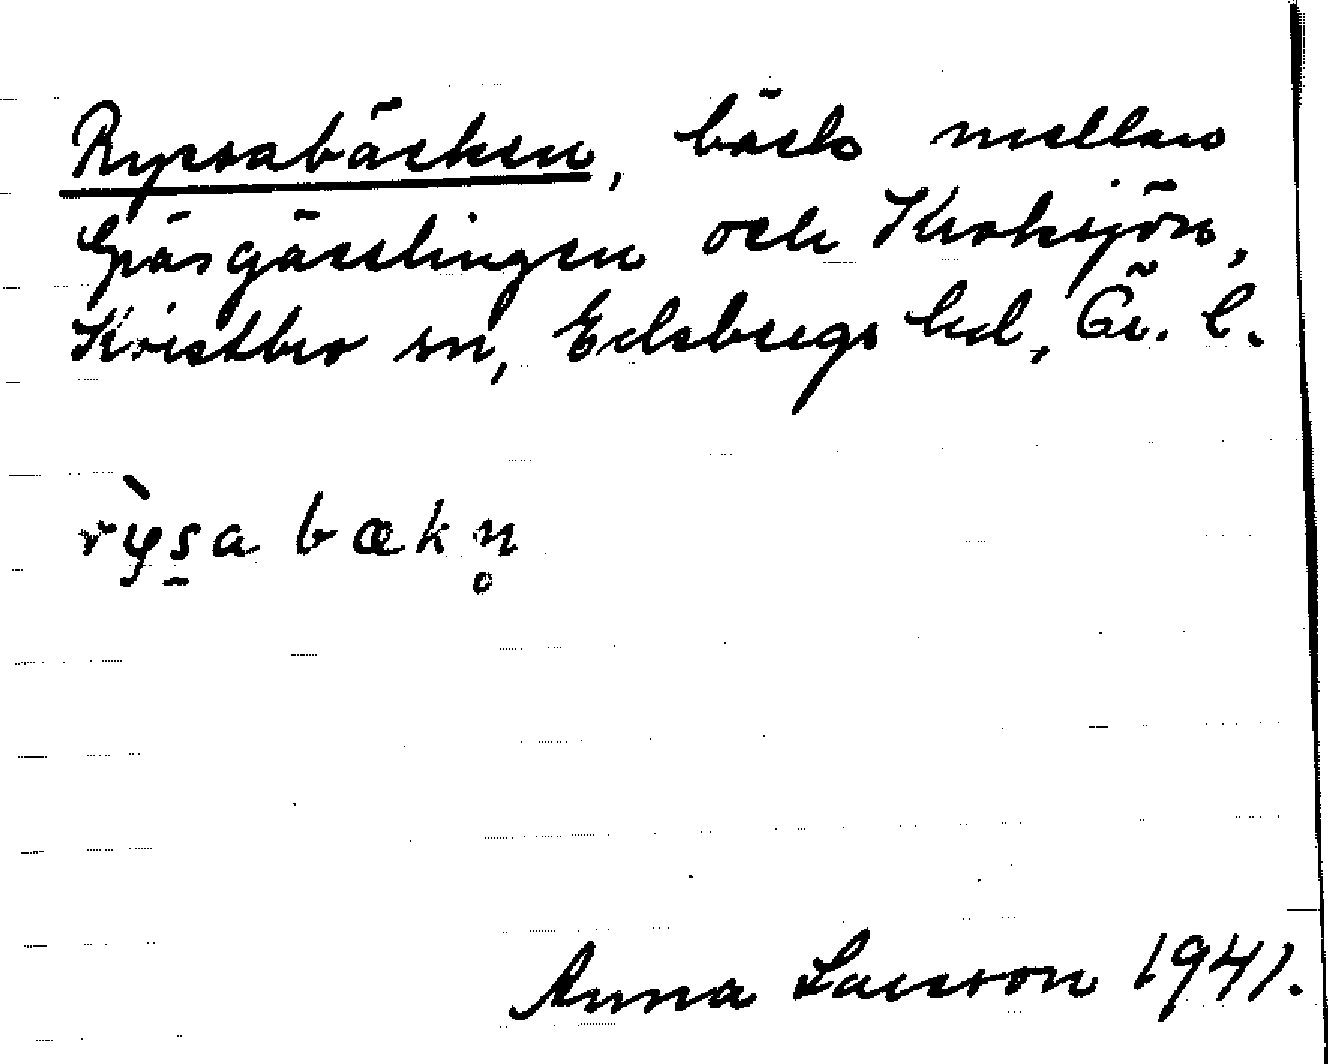 Ryssabäcken, bäck mellan
Gräsgässlingen och Kroksjön,
Kvistbro sn, Edsbergs hd, Ör. l.
rỳs̱a bækn̥
Anna Larsson 1941.